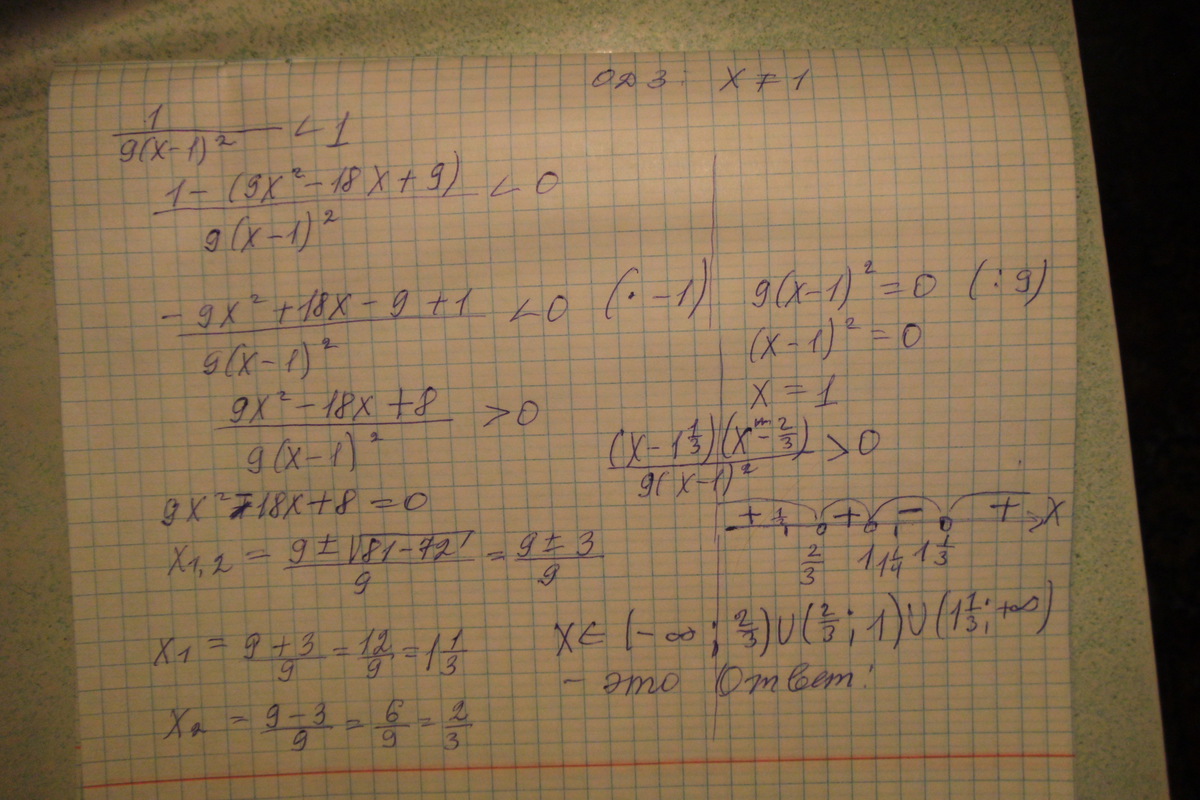 ОДЗ: x ≠ 1
1/(9(x-1)²) < 1
(1 - (9x² - 18x + 9))/(9(x-1)²) < 0
(-9x² + 18x - 9 + 1)/(9(x-1)²) < 0 (· -1)
(9x² - 18x + 8)/(9(x-1)²) > 0
9x² - 18x + 8 = 0
x1,2 = (9 ± √(81-72))/9 = (9 ± 3)/9
x1 = (9+3)/9 = 12/9 = 1 1/3
x2 = (9-3)/9 = 6/9 = 2/3
9(x-1)² = 0 (: 9)
(x-1)² = 0
x = 1
((x - 1 1/3)(x - 2/3))/(9(x-1)²) > 0
+ + - + x
2/3 1 1 1/4 1 1/3
x ∈ (-∞; 2/3) ∪ (2/3; 1) ∪ (1 1/3; +∞)
- это Ответ!